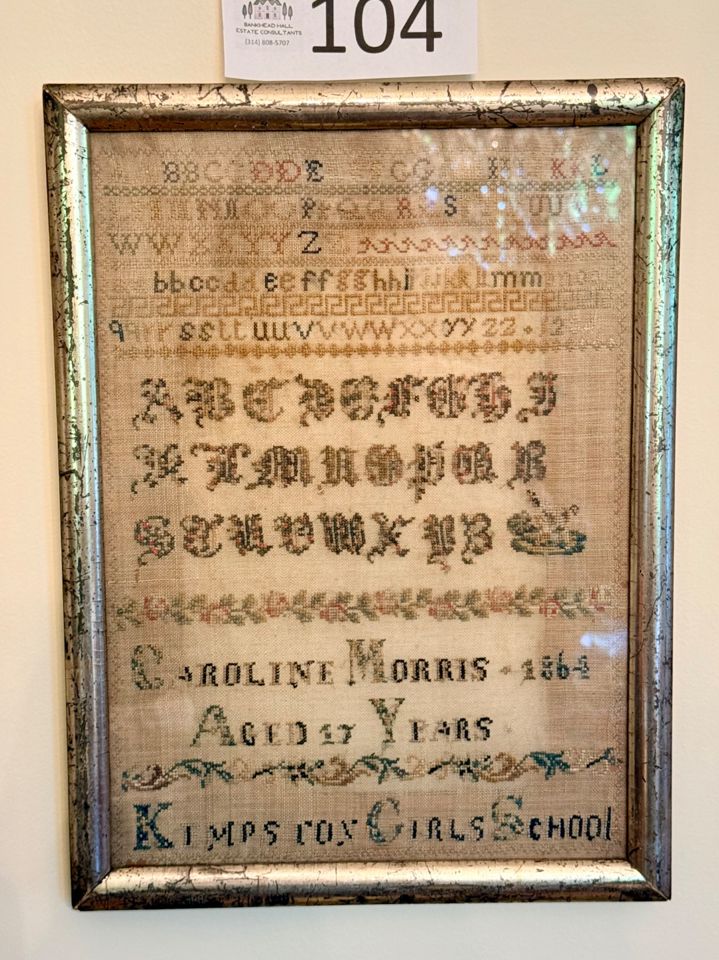 104
BANKHEAD HALL
ESTATE CONSULTANTS
(314) 808-5707
BBCCDDE CG KKL
P R S UU
WW XXYYZ
bbccddeeffgghhi mm
qqrrssttuuvvwwxxyyzz
ABCDEFGHI
KLMNOPQR
STUVWXYZ
CAROLINE MORRIS 1864
AGED 17 YEARS
GIRLS SCHOOL